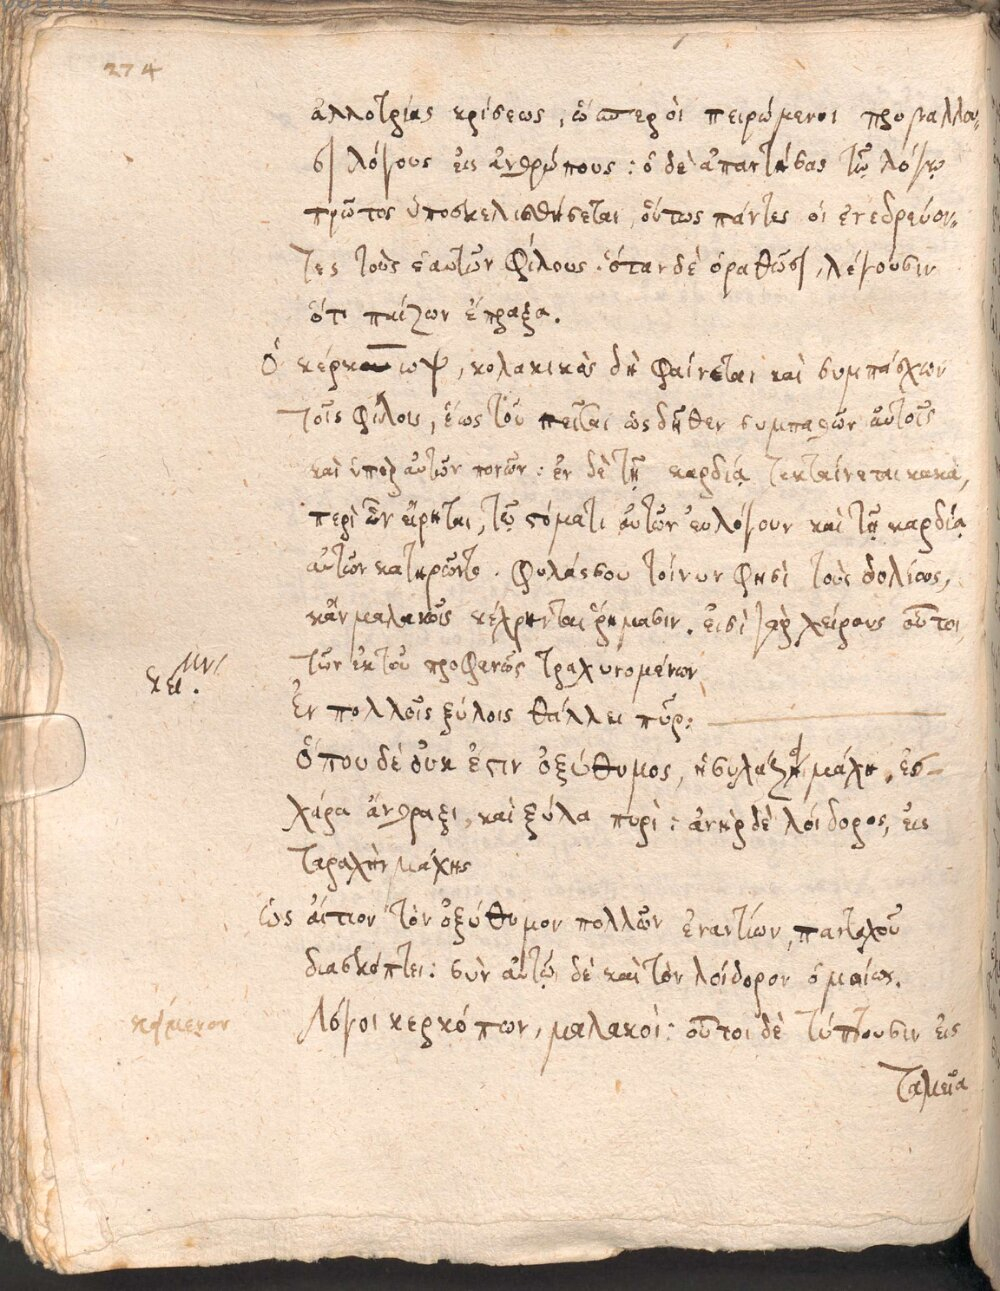 274
ἀλλοτρίας κρίσεως, ὥσπερ οἱ πειρώμενοι προβάλλου-
σι λόγους εἰς ἀνθρώπους: ὁ δὲ ἀπαντήσας τῷ λόγῳ
πρῶτος ὑποσκελισθήσεται, οὕτως πάντες οἱ ἐνεδρεύον-
τες τοὺς ἑαυτῶν φίλους. ὅταν δὲ ὁραθῶσι, λέγουσιν
ὅτι παίζων ἔπραξα.
Ὁ κέρκωψ, κολακικὸς δὴ φαίνεται καὶ συμπάσχων
τοῖς φίλοις, ἕως τοῦ ὡς δῆθεν συμπαθῶν αὐτοῖς
καὶ ὑπὲρ αὐτῶν πονῶν: ἐν δὲ τῇ καρδίᾳ τεκταίνεται κακὰ,
περὶ ὧν εἴρηται, τῷ στόματι αὐτῶν εὐλόγουν καὶ τῇ καρδίᾳ
αὐτῶν κατηρῶντο. Φυλάσσου τοίνυν φησὶ τοὺς δολίους,
κἂν μαλακοῖς κέχρηνται ῥήμασιν. εἰσὶ γὰρ χείρους οὗτοι,
τῶν ἐκ τοῦ προφανῶς τραχυνομένων
κειμν.
Ἐν πολλοῖς ξύλοις θάλλει πῦρ:
Ὅπου δὲ οὐκ ἔστιν ὀξύθυμος, ἡσυχάζει μάχη, ἐσ-
χάρα ἄνθραξι, καὶ ξύλα πυρί: ἀνὴρ δὲ λοίδορος, εἰς
ταραχὴν μάχης
Ὡς αἴτιον τὸν ὀξύθυμον πολλῶν ἐναντίων, πανταχοῦ
διασκόπτει: σὺν αὐτῷ δὲ καὶ τὸν λοίδορον ὁμοίως.
κείμενον
Λόγοι κερκόπων, μαλακοί: οὗτοι δὲ τύπτουσιν εἰς
ταμεῖα